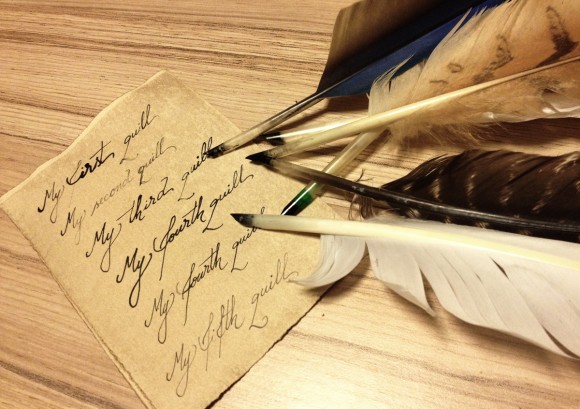 My first quill
My second quill
My third quill
My fourth quilt
My fourth quill
My fifth quill